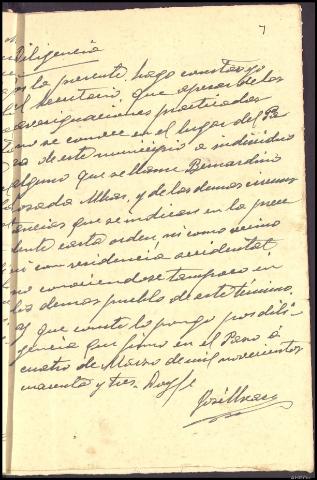 7
Diligencia
la presente, hago constar yo
el Secretario, que apesar de las
averiguaciones practicadas
no se conoce en el lugar del Pe
de este municipio a individuo
alguno que se llame Bernardino
Losada y de las demas circuns
tancias que se indican en la prece
dente carta orden, ni como vecino
ni con residencia accidental
no conociendose tampoco en
los demas pueblos de este término.
Y que conste lo pongo por dili-
gencia que firmo en el Pero á
cuatro de Marzo de mil novecientos
cuarenta y tres. Doy fe
José